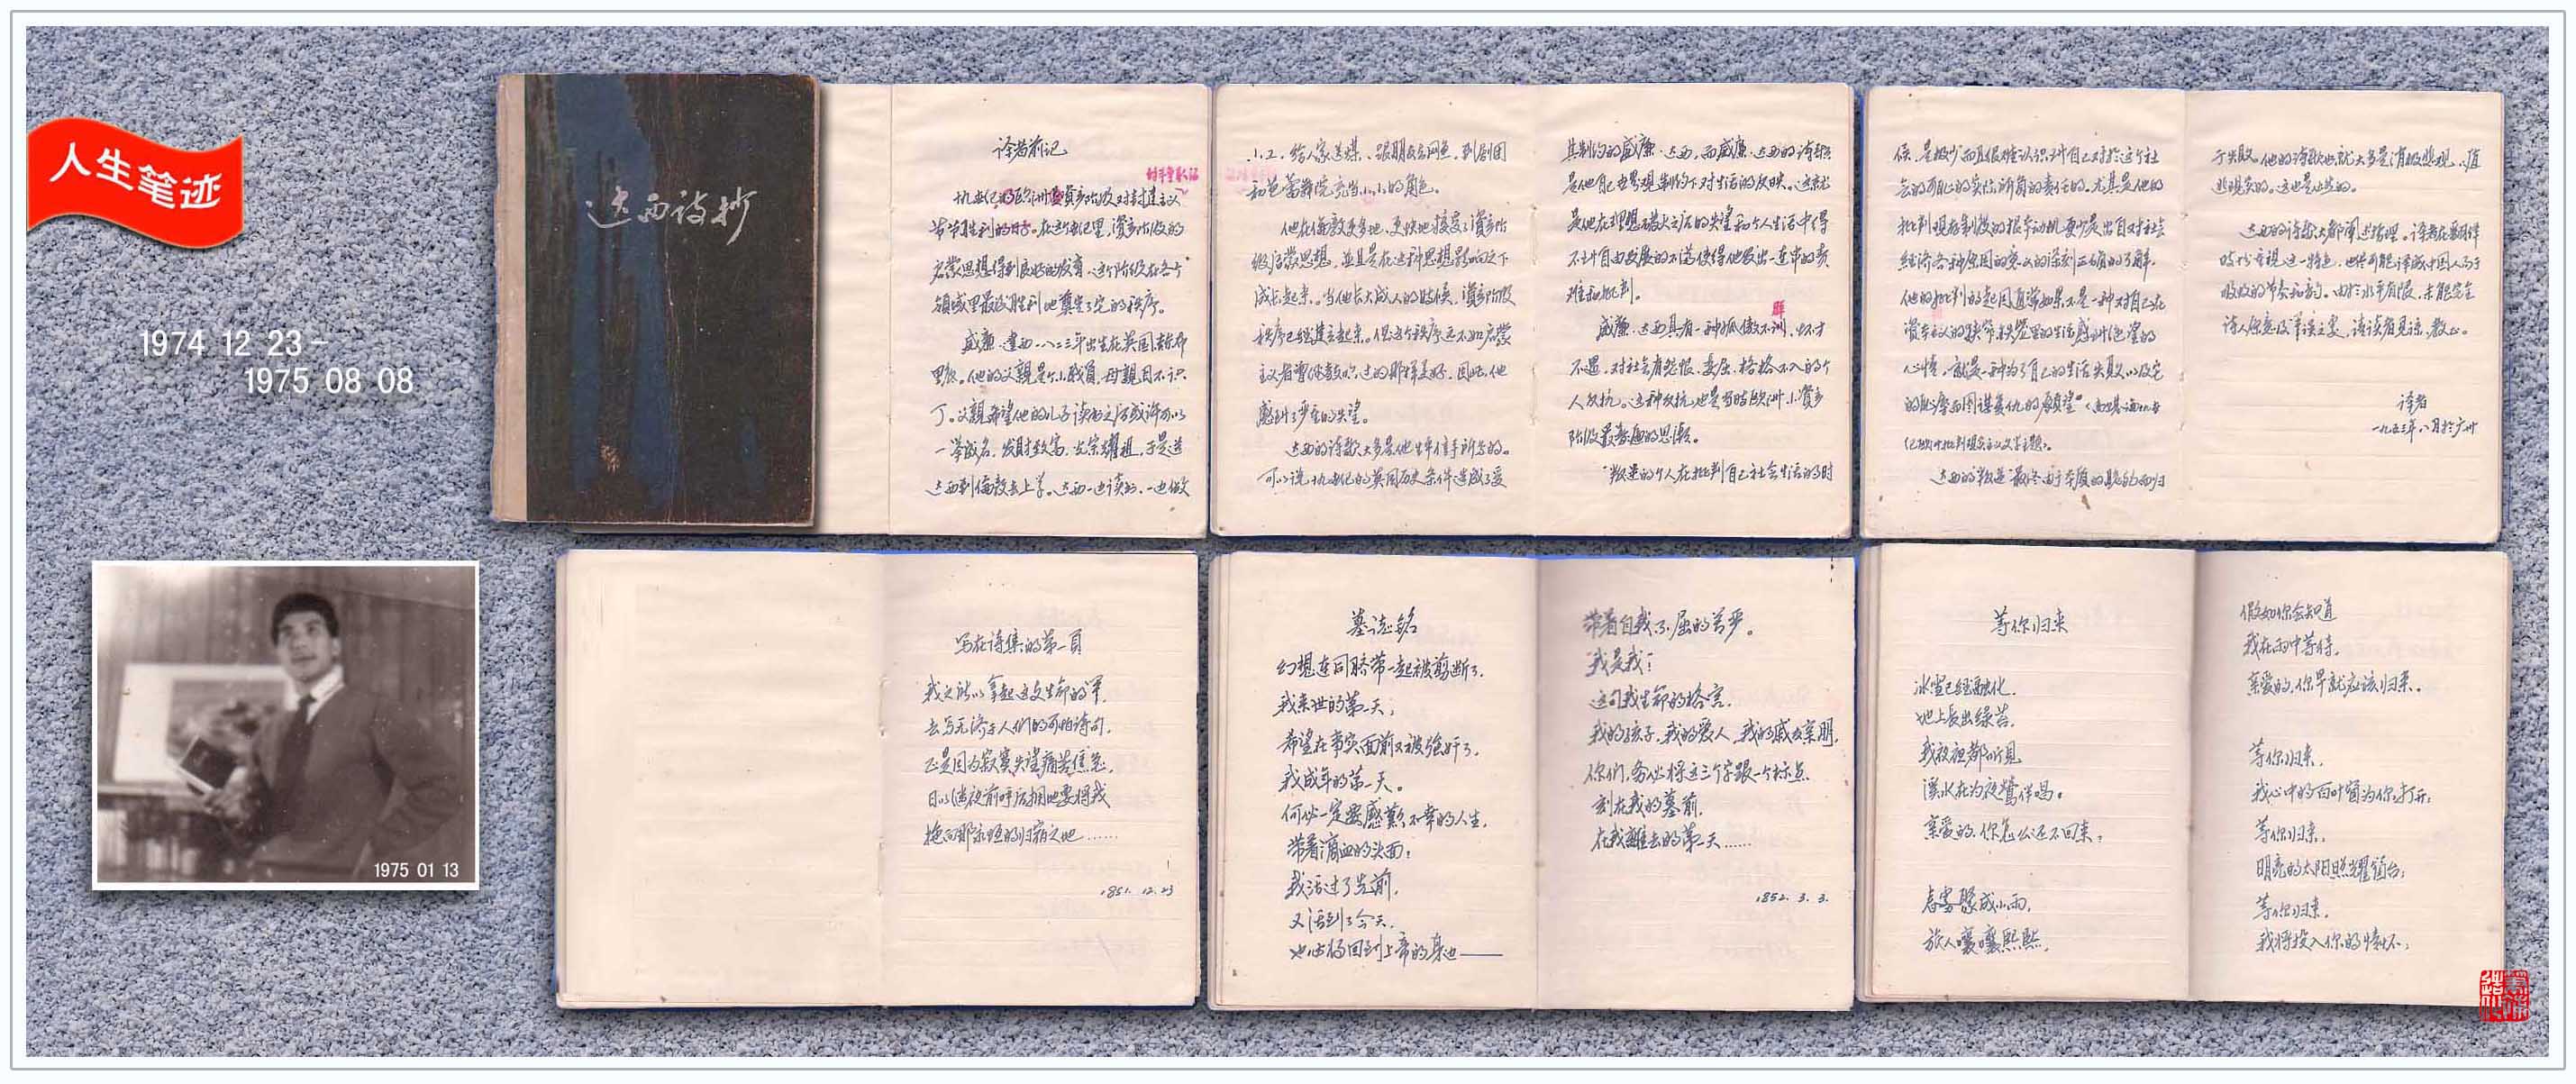 人生笔迹
1974 12 23 -
1975 08 08
1975 01 13
达西诗抄
译者前记
十九世纪的欧洲是资产阶级对封建主义
节节胜利的时。在这个世纪里,资产阶级的
启蒙思想得到良好的发育。这个阶级在各个
领域里最后胜利地奠定了它的秩序。
威廉·达西一八二三年出生在英国
他的父親是个小职員,母親目不识
丁。父親希望他的儿子读书之后或许可以
一举成名,发財致富,光宗耀祖,于是送
达西到倫敦去上学。达西一边读书,一边做
小工,给人家送煤、跟朋友去网鱼,到剧团
和芭蕾舞院充当小小的角色。
他在倫敦更多地、更快地接受了資产阶
级启蒙思想,並且是在这种思想影响之下
成长起来。当他长大成人的时候,資产阶级
秩序已经建立起来。但这个秩序远不如启蒙
主义者曾经教吹过的那样美好,因此,他
感到了严重的失望。
达西的诗歌大多是他生平信手所写的。
可以说十九世纪的英国历史条件造成了受
其制约的威廉·达西,而威廉·达西的诗歌
是他自己世界观制约下对生活的反映。这就
是他在理想破灭之后的失望和个人生活中得
不到自由发展的不满使得他发出一连串的责
难和批判。
威廉·达西具有一种孤傲不训、怀才
不遇、对社会有怨恨、委屈、格格不入的个
人反抗。这种反抗也是当时欧洲小资产
阶级最普遍的思潮。
“叛逆的个人在批判自己社会生活的时
候,是极少而且很难认识到自己对於这个社
会的可耻的实际所负的责任的。尤其是他的
批判现存制度的根本动机要少是出自对社会
经济各种原因的意义的深刻正确的了解。
他的批判的起因通常如果不是一种对自己在
资本主义的狭窄铁笼里的生活感到绝望的
心情,就是一种为了自己的生活失败以及它
的耻辱而图谋复仇的願望”
达西的叛逆最终由于本质的脆弱而归
于失败。他的诗歌也就大多是消极悲观、
逃现实的。这也是必然的。
达西的诗歌大都阐述哲理。译者在翻译
时极重视这一特色,也尽可能译成中国人易于
吸收的节奏和韵。由於水平有限,未能完全
诗人原意及译误之处,请读者见谅,教正。
译者
一九五三年八月於广州
写在诗集的第一頁
我之所以拿起这支生命的笔,
去写无济于人们的可怕诗句,
正是因为寂寞失望痛苦焦急,
日以继夜前呼后拥地要将我
拖向那永恒的归宿之地……
1851. 12. 23
墓誌铭
幻想连同脐带一起被剪断了,
我来世的第一天;
希望在事实面前又被强奸了,
我成年的第一天。
何必一定要感歎不幸的人生,
带着滴血的头面;
我活过了先前,
又活到了今天,
也必将回到上帝的身边——
带着自我不屈的尊严。
我是我!
这句我生命的格言,
我的孩子,我的爱人,我的戚友亲朋,
你们,务必将这三个字跟一个标点,
刻在我的墓前,
在我離去的第一天……
1852. 3. 3.
等你归来
冰雪已经融化,
地上長出绿苔,
我夜夜都听見
溪水在为夜鶯伴唱。
亲爱的,你怎么还不回来;
春雾聚成小雨,
旅人嚷嚷熙熙,
假如你会知道
我在雨中等待,
亲爱的,你早就应该归来。
等你归来,
我心中的百叶窗为你打开;
等你归来,
明亮的太阳照耀窗台;
等你归来,
我将投入你的情怀;